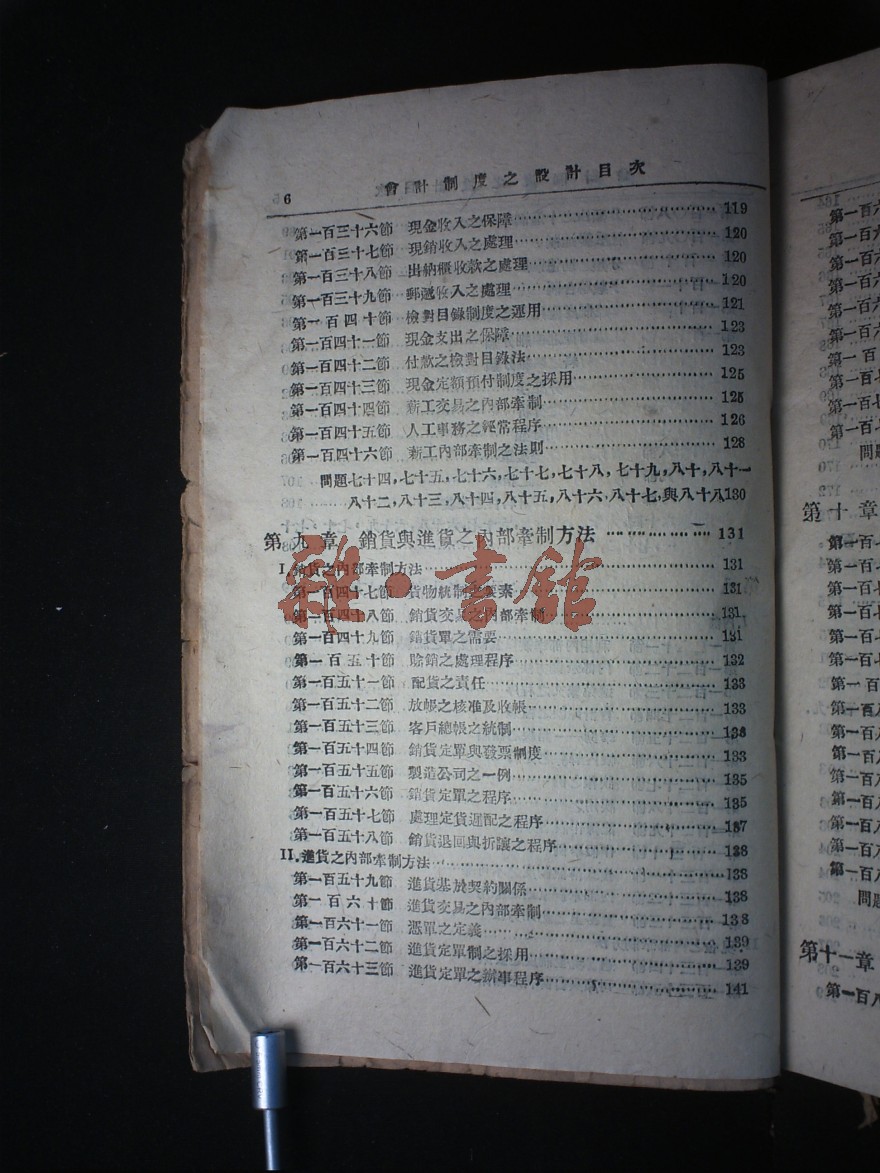 6 會計制度之設計目次
第一百三十六節 現金收入之保障 119
第一百三十七節 現銷收入之處理 120
第一百三十八節 出納櫃收款之處理 120
第一百三十九節 郵遞收入之處理 120
第一百四十節 檢對目錄制度之運用 121
第一百四十一節 現金支出之保障 123
第一百四十二節 付款之檢對目錄法 123
第一百四十三節 現金定額預付制度之採用 125
第一百四十四節 薪工交易之內部牽制 125
第一百四十五節 人工事務之經常程序 126
第一百四十六節 薪工內部牽制之法則 128
問題七十四，七十五，七十六，七十七，七十八，七十九，八十，八十一
八十二，八十三，八十四，八十五，八十六，八十七，與八十八 130
第九章 銷貨與進貨之內部牽制方法 131
I. 銷貨之內部牽制方法 131
第一百四十七節 貨物統制之要素 131
第一百四十八節 銷貨交易之內部牽制 131
第一百四十九節 銷貨單之需要 131
第一百五十節 賒銷之處理程序 132
第一百五十一節 配貨之責任 133
第一百五十二節 放帳之核准及收帳 133
第一百五十三節 客戶總帳之統制 133
第一百五十四節 銷貨定單與發票制度 133
第一百五十五節 製造公司之一例 135
第一百五十六節 銷貨定單之程序 135
第一百五十七節 處理定貨遲配之程序 137
第一百五十八節 銷貨退回與折讓之程序 138
II. 進貨之內部牽制方法 138
第一百五十九節 進貨基於契約關係 138
第一百六十節 進貨交易之內部牽制 138
第一百六十一節 憑單之定義 139
第一百六十二節 進貨定單制之採用 139
第一百六十三節 進貨定單之辦事程序 141
雜·書館
第十章
第十一章